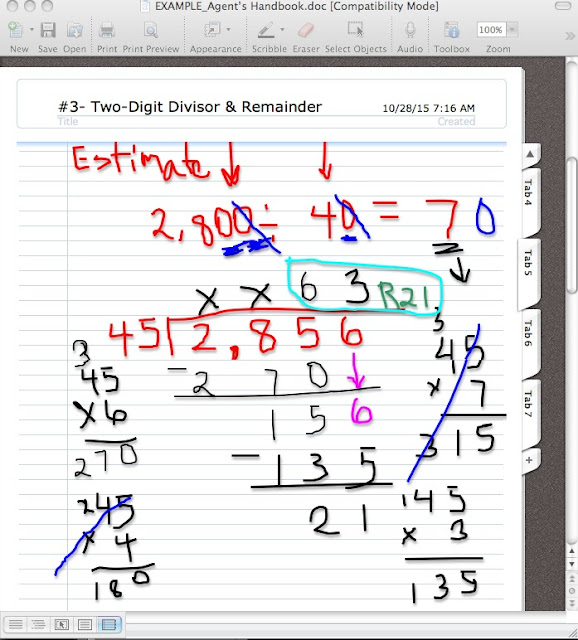 EXAMPLE_Agent's Handbook.doc [Compatibility Mode]
New Save Open Print Print Preview Appearance Scribble Eraser Select Objects Audio Toolbox Zoom
100%
#3- Two-Digit Divisor & Remainder 10/28/15 7:16 AM
Title Created
Estimate
2,800 ÷ 40 = 70
x x 6 3 R21
45 2,856
- 2 7 0
1 5 6
- 1 3 5
2 1
3
45
x6
270
2
45
x 4
180
3
45
x 7
315
1
45
x 3
135
Tab 4
Tab 5
Tab 6
Tab 7
+